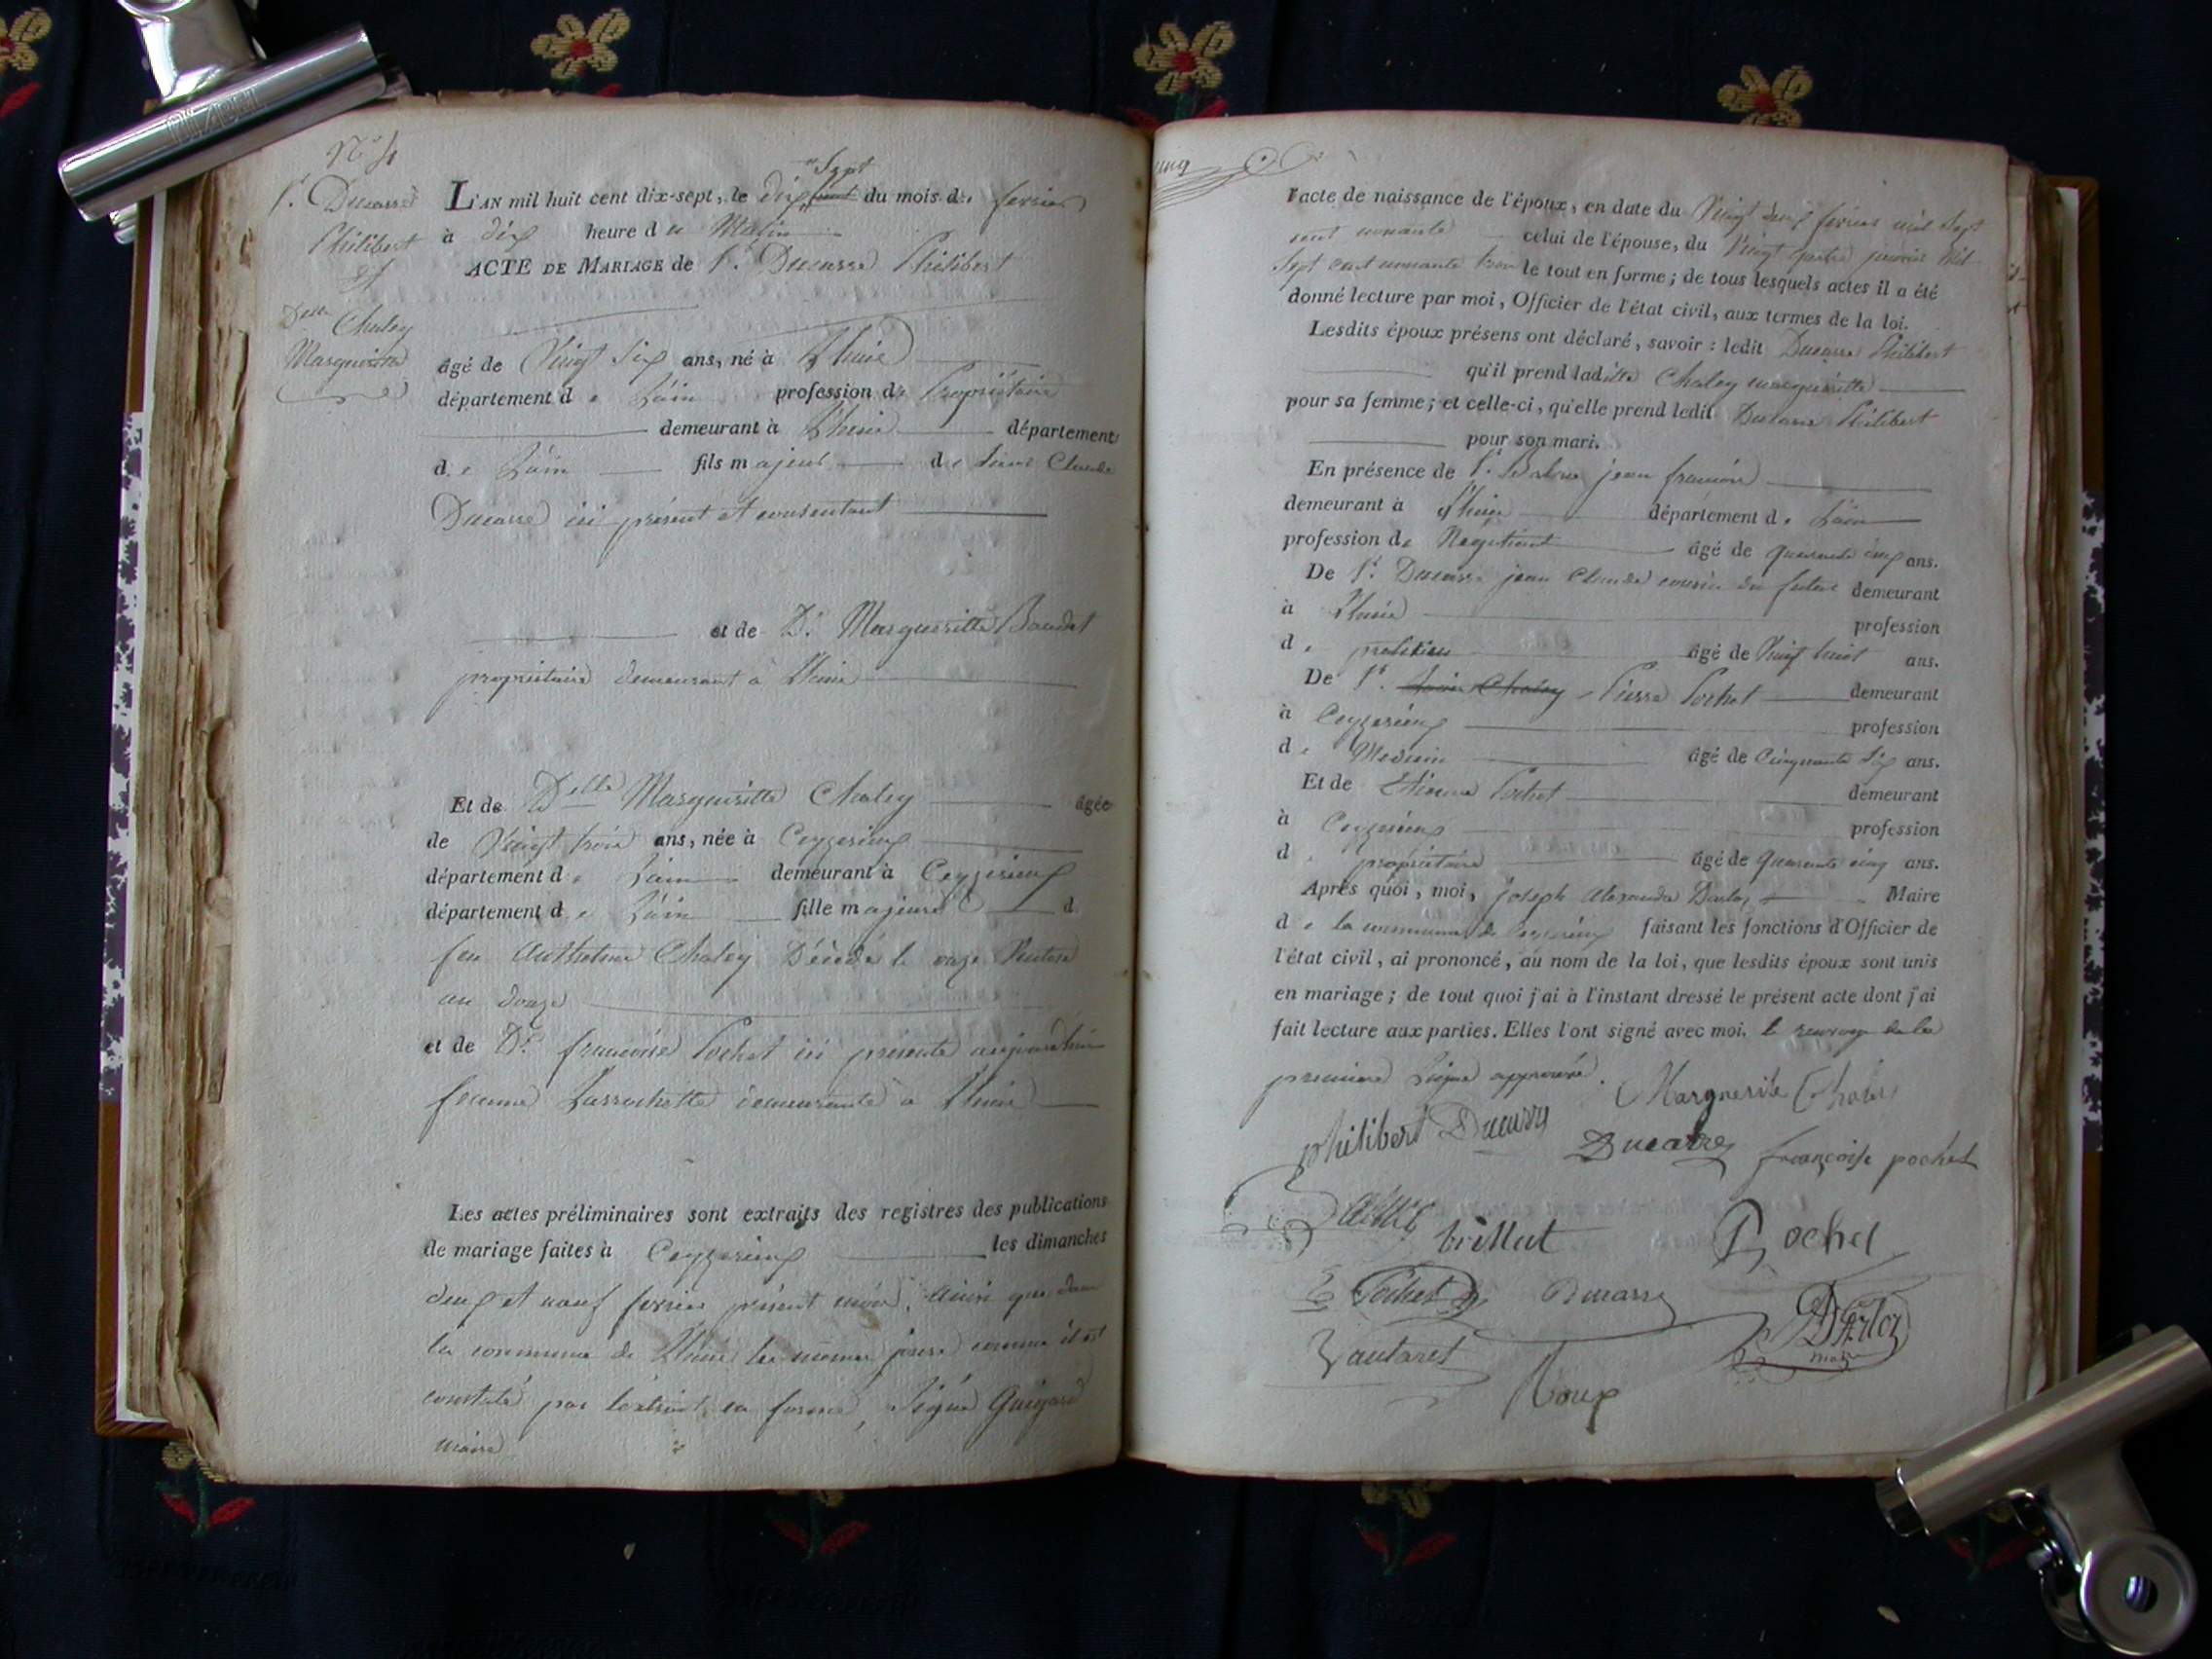 N° 4
Sr. Ducarre
Philibert
et
Delle
Chaley
Marguerite
L'AN mil huit cent dix-sept, le dix Sept du mois de fevrier
à dix heure du Matin
ACTE DE MARIAGE de Sr. Ducarre Philibert
âgé de Vingt Six ans, né à
département de Lain profession de Propriétaire
demeurant à département
de Lain fils majeur de Sieur Claude
Ducarre ici présent et consentant
et de De. Margueritte Baudet
propriétaire demeurant à
Et de Delle Marguerite Chaley âgée
de Vingt trois ans, née à Ceyzerieux
département de Lain demeurant à Ceyzerieux
département de Lain fille majeure d
feu Anthelme Chaley Décédé le onze Ventose
an douze
et de De. francoise Pochet ici présente aujourdhui
femme Larrochette demeurante à
Les actes préliminaires sont extraits des registres des publications
de mariage faites à Ceyzerieux les dimanches
deux et neuf fevrier présent mois, Ainsi que dans
la commune de les mêmes jours comme il est
constaté par lextrait en forme, Signé Guigard
maire
l'acte de naissance de l'époux, en date du Vingt deux fevrier mil Sept
cent nonante celui de l'épouse, du Vingt quatre janvier Mil
Sept cent nonante trois le tout en forme; de tous lesquels actes il a été
donné lecture par moi, Officier de l'état civil, aux termes de la loi.
Lesdits époux présens ont déclaré, savoir : ledit Ducarre Philibert
qu'il prend ladille Chaley margueritte
pour sa femme; et celle-ci, qu'elle prend ledit Ducarre Philibert
pour son mari.
En présence de Sr. jean francois
demeurant à département de Lain
profession de Negotiant âgé de quarante ans.
De Sr. Ducarre jean Claude cousin du futur demeurant
à profession
de praticien âgé de Vingt huit ans.
De Sr. Pierre Pochet demeurant
à Ceyzerieux profession
de Medecin âgé de Cinquante Six ans.
Et de Etienne Pochet demeurant
à Ceyzerieux profession
de propriétaire âgé de quarante cinq ans.
Après quoi, moi, joseph Alexandre Darloz Maire
de la commune de Ceyzerieux faisant les fonctions d'Officier de
l'état civil, ai prononcé, au nom de la loi, que lesdits époux sont unis
en mariage; de tout quoi j'ai à l'instant dressé le présent acte dont j'ai
fait lecture aux parties. Elles l'ont signé avec moi. le renvoy de la
premiere Ligne approuvé.
Marguerite Chaley
philibert Ducarre
Ducarre françoise pochet
trillat Pochet
E Pochet Ducarre
Darloz
maire
Vautaret
Roux